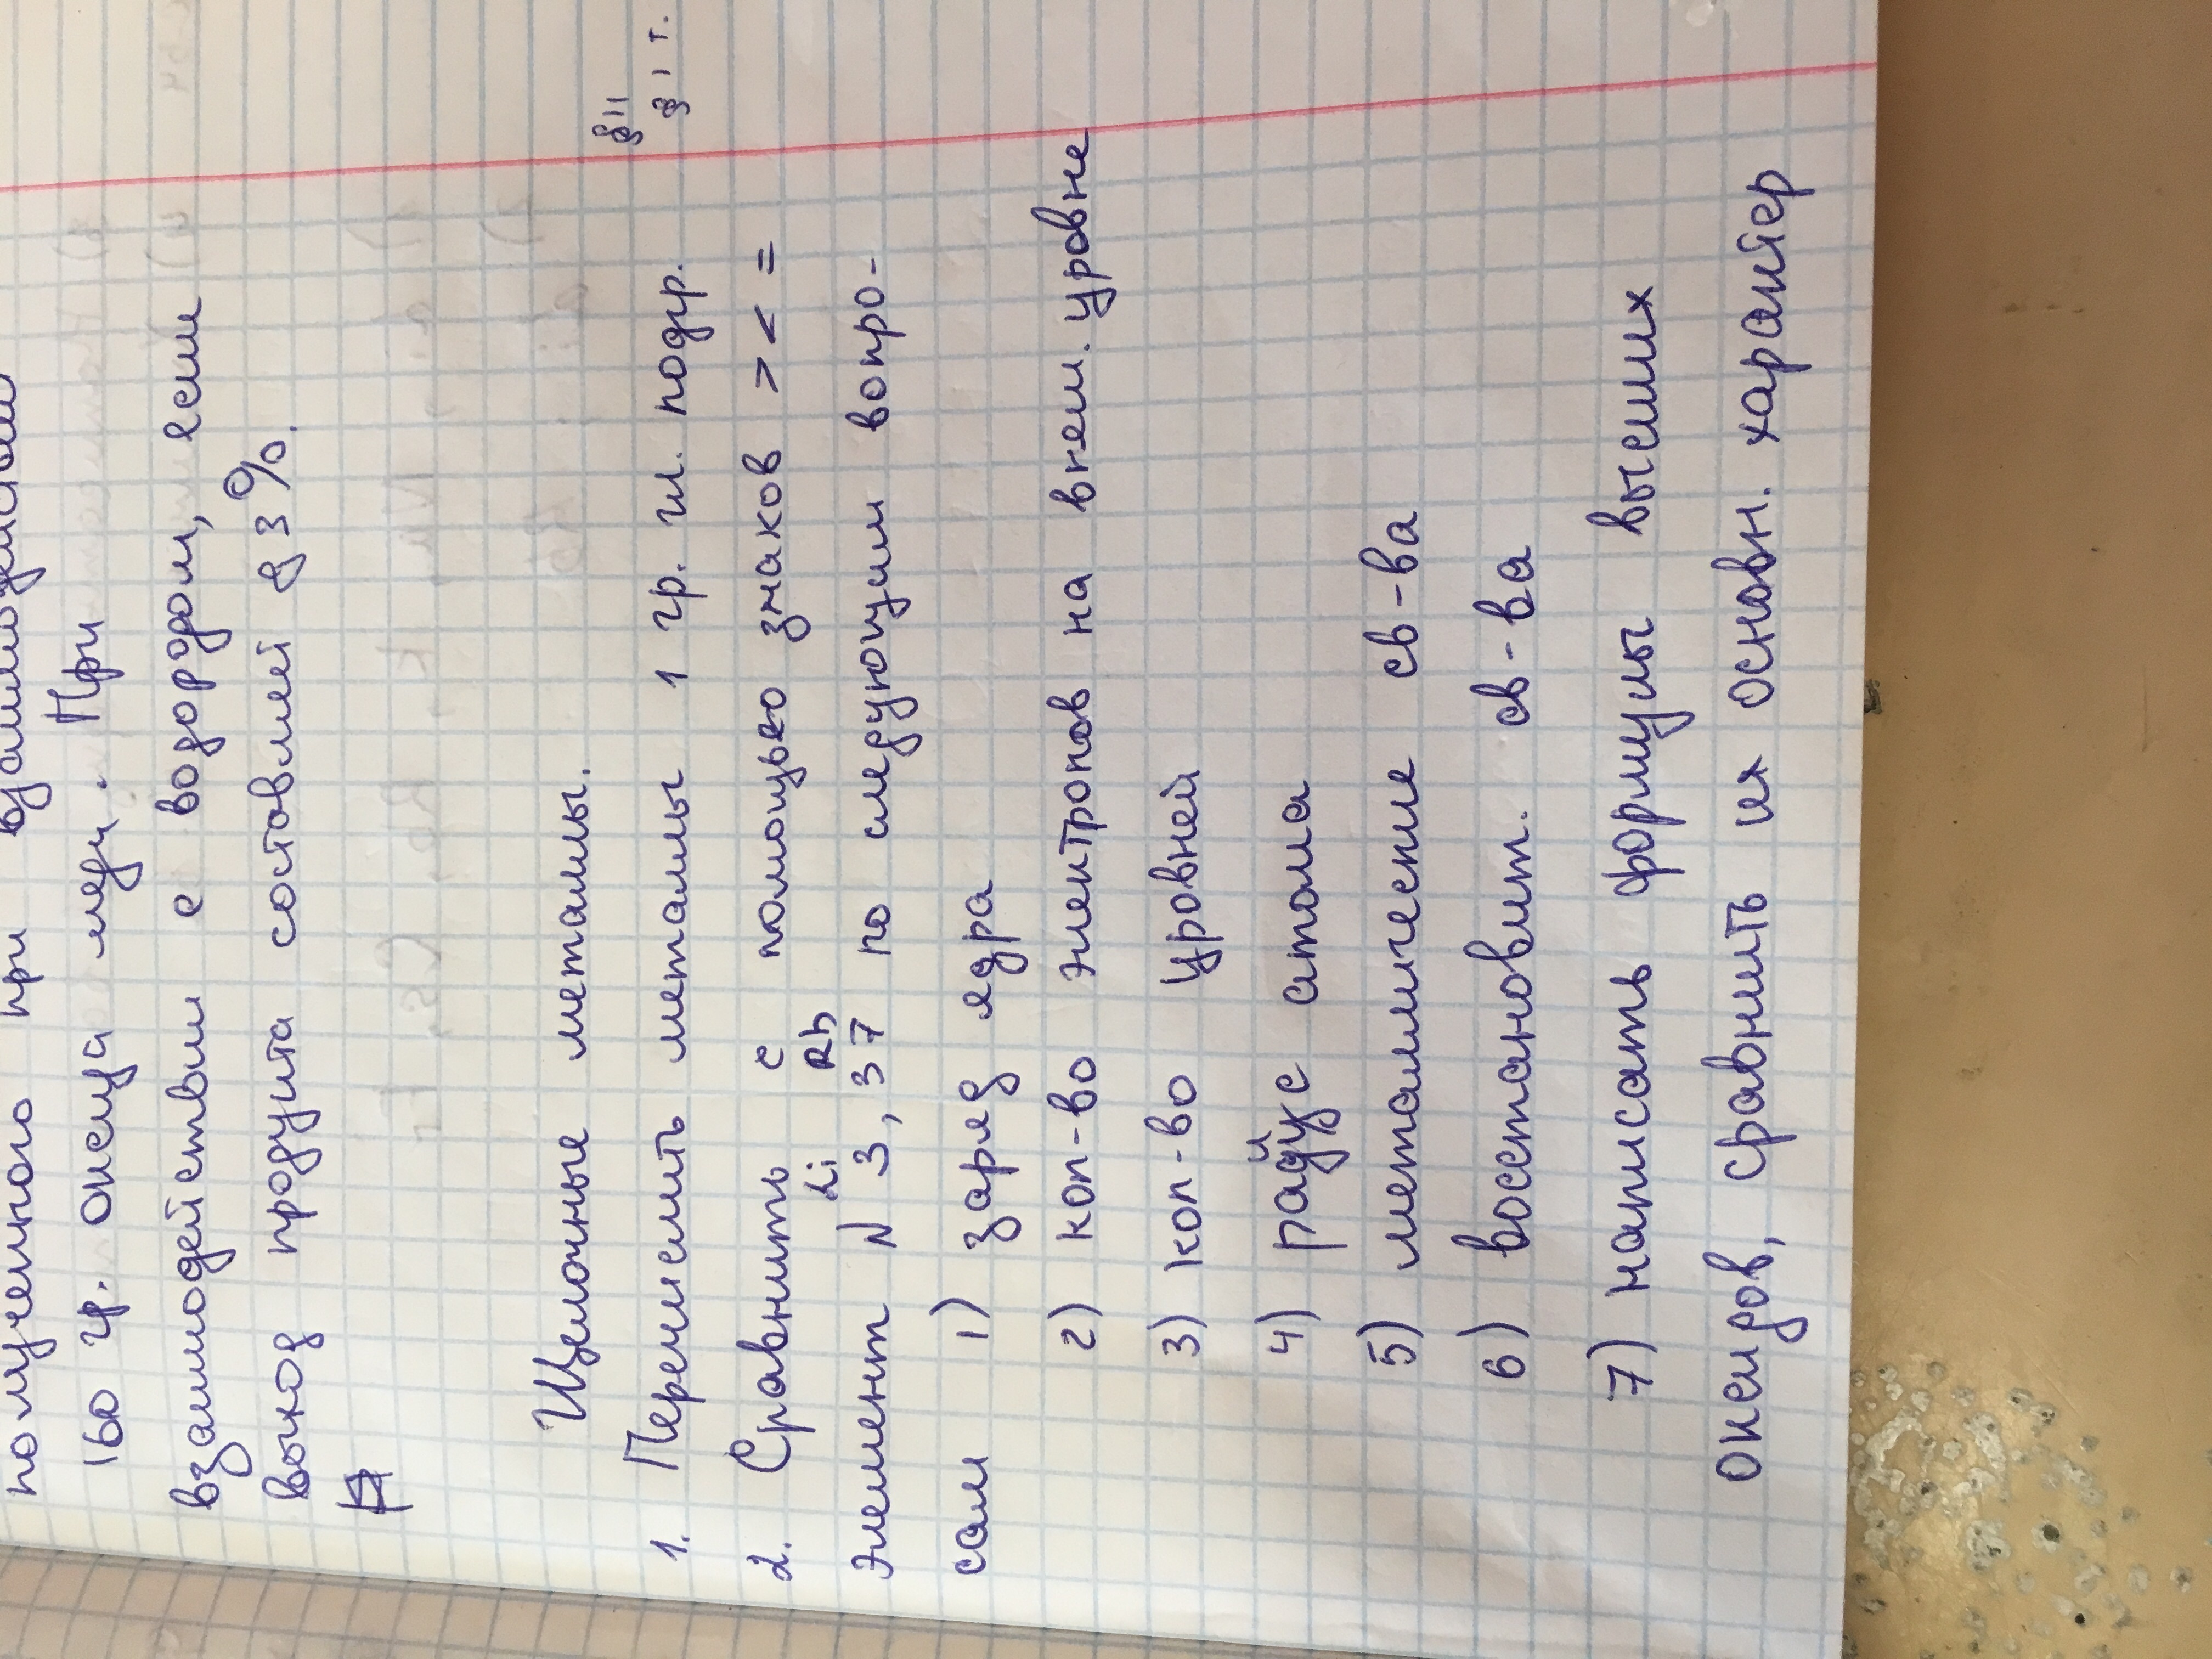 полученного при взаимодействии
160 гр. оксида меди. При
взаимодействии с водородом, если
выход продукта составляет 83%.
Щелочные металлы.
1. Перечислить металлы 1 гр. гл. подгр.
§11
§ 1 т.
2. Сравнить с помощью знаков > < =
Li Rb
элемент N 3, 37 по следующим вопро-
сам 1) заряд ядра
2) кол-во электронов на внеш. уровне
3) кол-во уровней
4) радиус атома
5) металлические св-ва
6) восстановит. св-ва
7) написать формулы высших
оксидов, сравнить их основн. характер